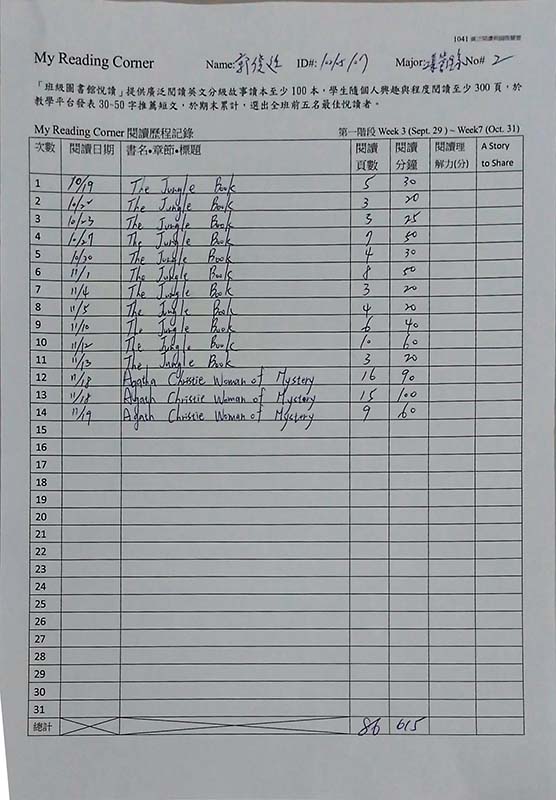 1041
My Reading Corner Name: ID#: Major: No# 2
「班級圖書館悅讀」提供廣泛閱讀英文分級故事讀本至少 100 本，學生隨個人興趣與程度閱讀至少 300 頁，於
教學平台發表 30-50 字推薦短文，於期末累計，選出全班前五名最佳悅讀者。
My Reading Corner 閱讀歷程記錄 第一階段 Week 3 (Sept. 29 ) ~ Week7 (Oct. 31)
次數 閱讀日期 書名•章節•標題 閱讀頁數 閱讀分鐘 閱讀理解力(分) A Story to Share
1 10/19 The Jungle Book 5 30
2 The Jungle Book 3 20
3 10/23 The Jungle Book 3 25
4 10/27 The Jungle Book 7 50
5 10/30 The Jungle Book 4 30
6 11/1 The Jungle Book 8 50
7 11/4 The Jungle Book 3 20
8 11/5 The Jungle Book 4 20
9 11/10 The Jungle Book 6 40
10 11/12 The Jungle Book 10 60
11 11/13 The Jungle Book 3 20
12 11/18 Agatha Christie Woman of Mystery 16 90
13 11/18 Agath Christie Woman of Mystery 15 100
14 11/19 Agath Christie Woman of Mystery 9 60
15
16
17
18
19
20
21
22
23
24
25
26
27
28
29
30
31
總計 86 615